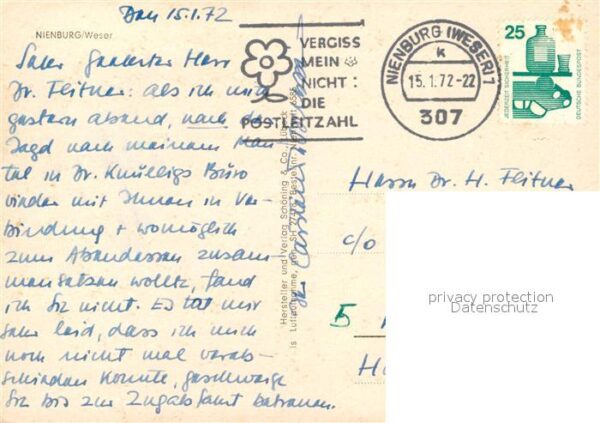 Den 15.1.72
NIENBURG/Weser
Sehr geehrter Herr
Dr. Fleitner: als ich mich
gestern abend, nach der
Jagd nach meinem Man-
tel in Dr. Knülligs Büro
wieder mit Ihnen in Ver-
bindung + womöglich
zum Abendessen zusam-
mensetzen wollte, fand
ich Sie nicht. Es tut mir
sehr leid, dass ich mich
noch nicht mal verab-
schieden konnte, geschweige
Sie bis zur Zugabfahrt betreuen.
VERGISS
MEIN
NICHT:
DIE
POSTLEITZAHL
NIENBURG (WESER) 1
k
15.1.72-22
307
25
JEDERZEIT SICHERHEIT
DEUTSCHE BUNDESPOST
Hersteller und Verlag Schöning & Co.
Herrn Dr. H. Fleitner
c/o
5
privacy protection
Datenschutz